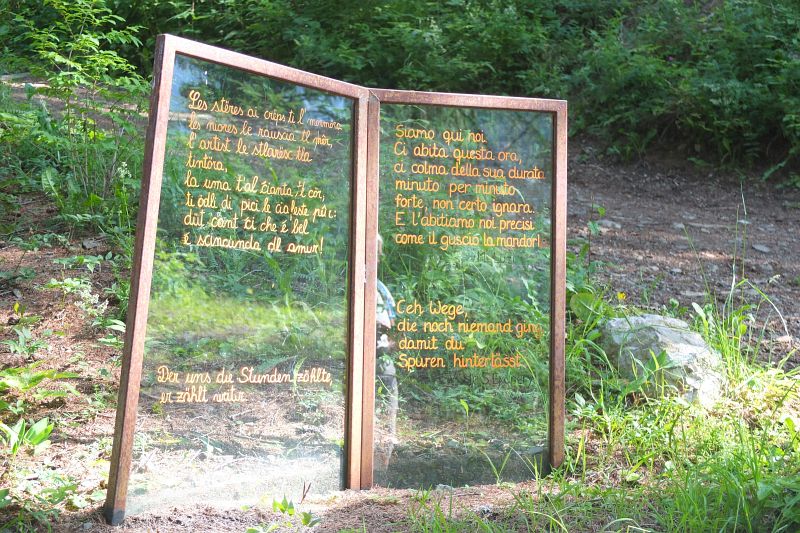 Les stëres ai crëps ti l mormora,
les niores le rauscia tl mër,
l'artist le stlarësc tla
tintöra,
la uma t'al cianta tl cör,
ti ödli di pici le ciafeste pör:
düt cönt ci che é bel
é scincunda dl amur!
Der uns die Stunden zählte,
er zählt weiter.
Siamo qui noi.
Ci abita questa ora,
ci colma della sua durata
minuto per minuto
forte, non certo ignara.
E l'abitiamo noi precisi
come il guscio la mandorl
Geh Wege,
die noch niemand ging,
damit du
Spuren hinterlässt